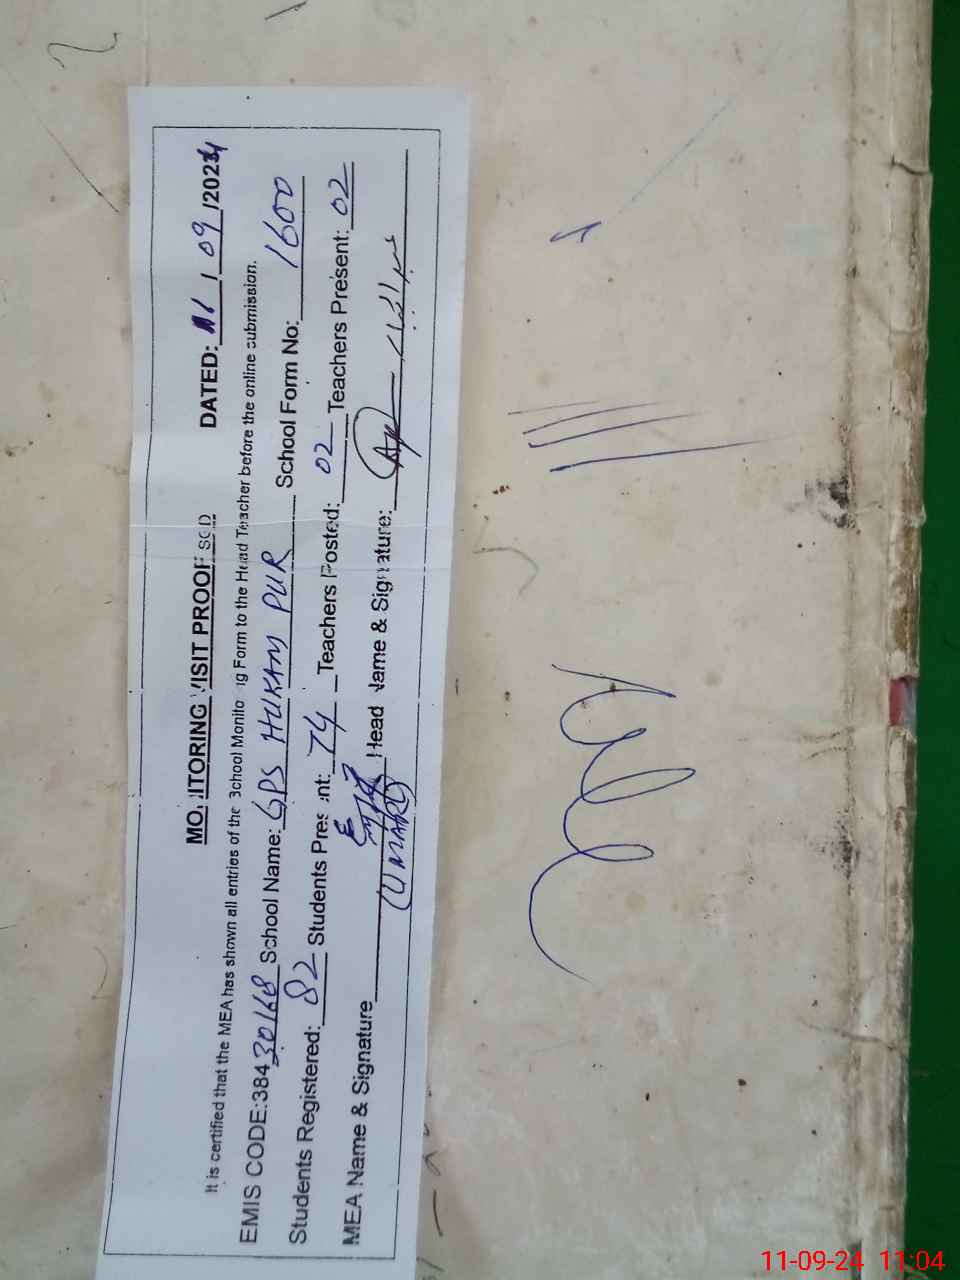 MONITORING VISIT PROOF SGD DATED: 11 / 09 /2024
It is certified that the MEA has shown all entries of the School Monitoring Form to the Head Teacher before the online submission.
EMIS CODE:38430168 School Name: GPS HUKAM PUR School Form No: 1600
Students Registered: 82 Students Present: 74 Teachers Posted: 02 Teachers Present: 02
MEA Name & Signature Head Name & Signature:
11-09-24 11:04